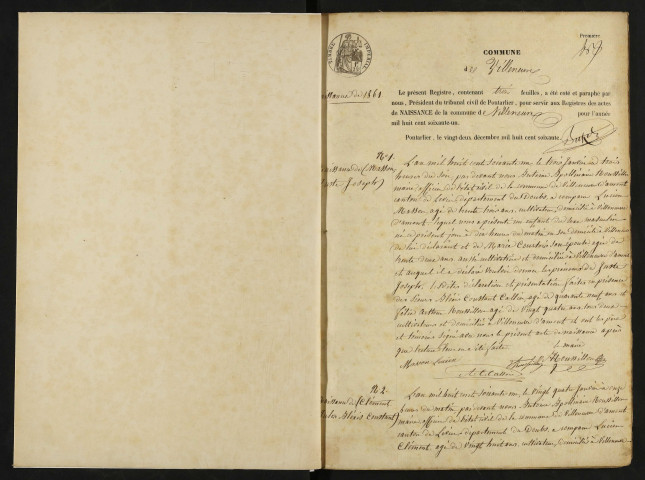 Première
COMMUNE
de Villeneuve
Naissance de 1861
Le présent Registre, contenant trois feuilles, a été coté et paraphé par
nous, Président du tribunal civil de Pontarlier, pour servir aux Registres des actes
de NAISSANCE de la commune de Villeneuve pour l'année
mil huit cent soixante-un.
Pontarlier, le vingt-deux décembre mil huit cent soixante.
N° 1
Naissance de (Masson
Juste Joseph)
L'an mil huit cent soixante un le trois janvier à trois
heures du soir, par devant nous Antoine Apollinaire Roussillon
maire officier de l'état civil de la commune de Villeneuve d'amont
canton de Levier département du Doubs, a comparu Lucien
Masson agé de trente trois ans, cultivateur, domicilié à Villeneuve
d'amont, lequel nous a présenté un enfant du sexe masculin
né ce présent jour à dix heures du matin en son domicile à Villeneuve
de lui déclarant et de Marie son épouse agée de
trente deux ans aussi cultivatrice et domiciliée à Villeneuve d'amont
et auquel il a déclaré vouloir donner les prénoms de Juste
Joseph. Lesdites déclaration et présentation faites en présence
des sieurs Alexis Constant Cassin agé de quarante neuf ans et
Félix Arthur Roussillon agé de vingt quatre ans tous deux
cultivateurs et domiciliés à Villeneuve d'amont et ont les père
et témoins signé avec nous le présent acte de naissance après
que lecture leur en a été faite
Masson Lucien
le maire
Roussillon
A. C. Cassin
N° 2
Naissance de (Clément
Alexis Constant)
L'an mil huit cent soixante un, le vingt quatre janvier à onze
heures du matin, par devant nous Antoine Apollinaire Roussillon
maire officier de l'état civil de la commune de Villeneuve d'amont
canton de Levier département du Doubs, a comparu Lucien
Clément, agé de vingt huit ans, cultivateur, domicilié à Villeneuve